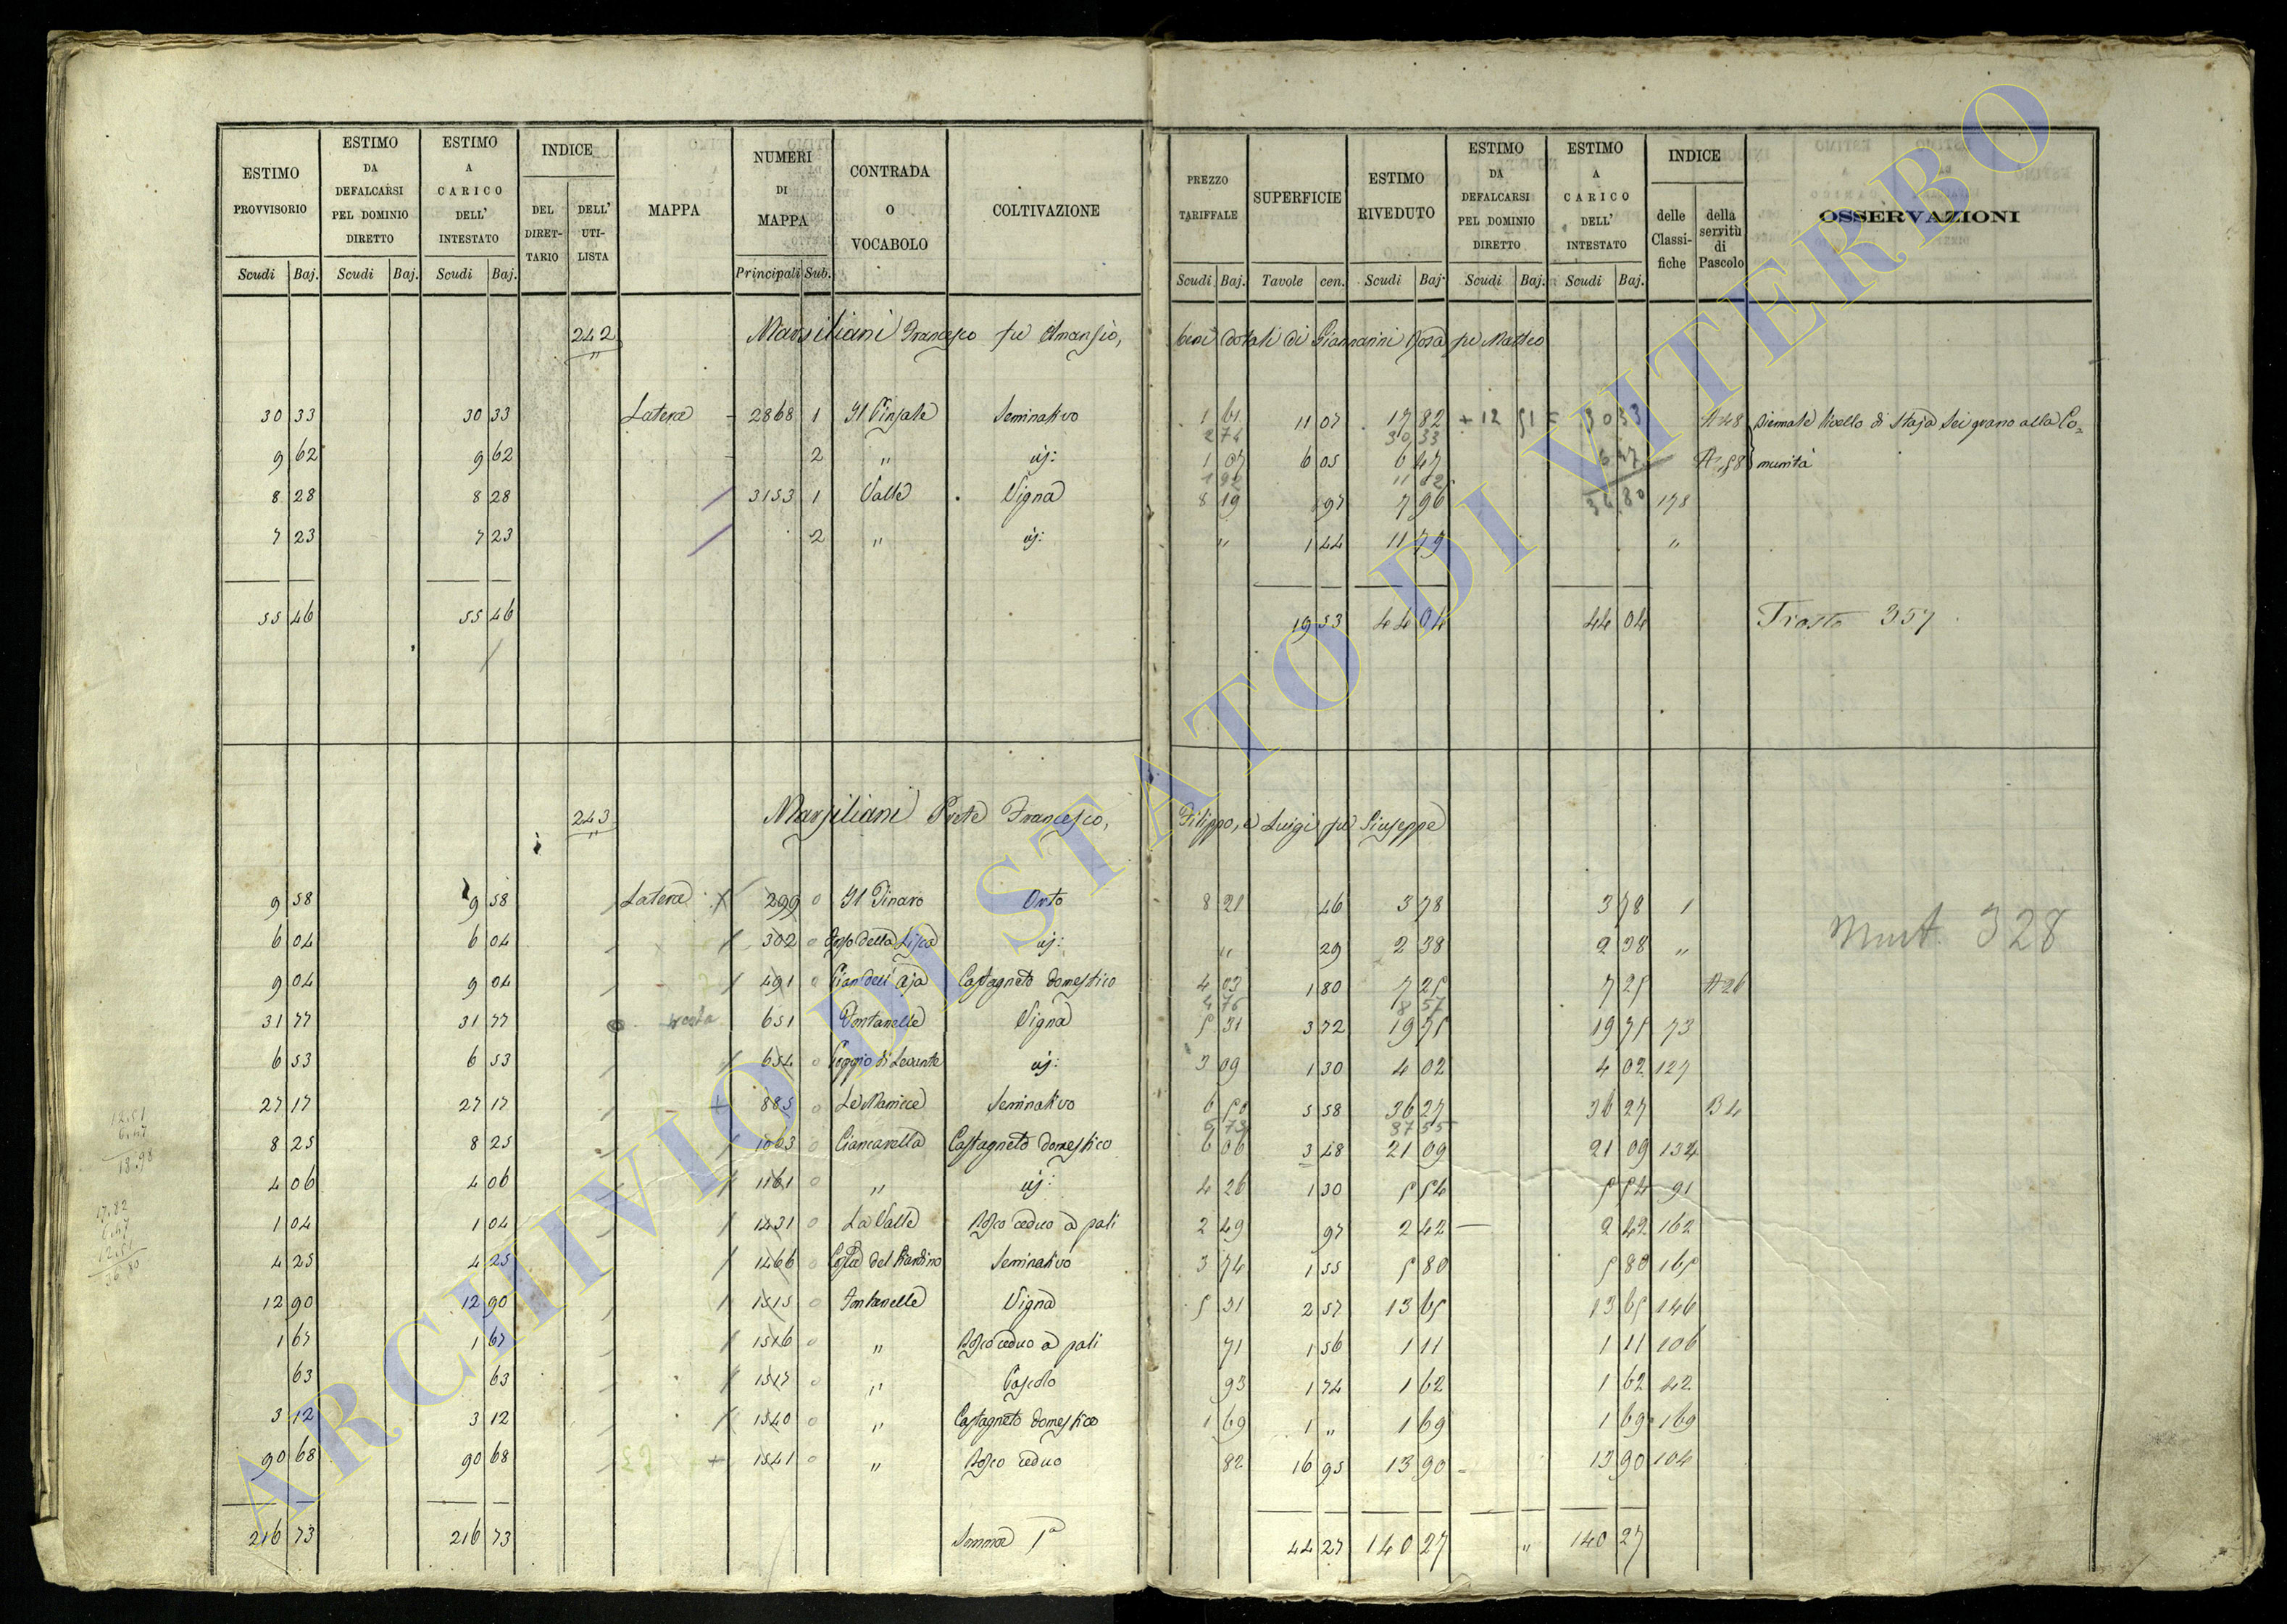 ESTIMO PROVVISORIO | ESTIMO DA DEFALCARSI PEL DOMINIO DIRETTO | ESTIMO A CARICO DELL' INTESTATO | INDICE | MAPPA | NUMERI DI MAPPA | CONTRADA O VOCABOLO | COLTIVAZIONE | PREZZO TARIFFALE | SUPERFICIE | ESTIMO RIVEDUTO | ESTIMO DA DEFALCARSI PEL DOMINIO DIRETTO | ESTIMO A CARICO DELL' INTESTATO | INDICE | OSSERVAZIONI
DEL DIRETTARIO | DELL' UTILISTA | delle Classifiche | della servitù di Pascolo
Scudi | Baj. | Scudi | Baj. | Scudi | Baj. | Principali | Sub. | Scudi | Baj. | Tavole | cen. | Scudi | Baj. | Scudi | Baj. | Scudi | Baj.
242 Marsiliani Francesco fu Amanzio, beni dotali di Giannarini Rosa fu Matteo
30 33 | 30 33 | Latera | 2868 | 1 | Seminativo | 1 61 | 11 07 | 17 82 | + 12 51 = | 30 33 | A 48 | livello di Staja Sei grano alla Co=
2 74 | 30 33
9 62 | 9 62 | 2 | " | id: | 1 07 | 6 05 | 6 47 | 6 47 | A 58 | munità
1 92 | 11 62
8 28 | 8 28 | 3153 | 1 | Valle | Vigna | 8 19 | 97 | 7 96 | 36 80 | 178
7 23 | 7 23 | 2 | " | id: | " | 1 44 | 11 79 | "
55 46 | 55 46 | 19 53 | 44 04 | 44 04 | 357
243 Marsiliani Prete Francesco, Filippo, e Luigi fu Giuseppe
9 58 | 9 58 | Latera | 299 | 0 | Il Pinaro | Orto | 8 21 | 46 | 3 78 | 3 78 | 1
6 04 | 6 04 | 302 | 0 | Fosso della Lisca | id: | " | 29 | 2 38 | 2 38 | " | Mut. 328
9 04 | 9 04 | 491 | 0 | Pian dell' Aja | Castagneto domestico | 4 03 | 1 80 | 7 25 | 7 25 | A 26
4 76 | 8 57
31 77 | 31 77 | 651 | Fontanelle | Vigna | 5 31 | 3 72 | 19 75 | 19 75 | 73
6 53 | 6 53 | 654 | 0 | Poggio di Levante | id: | 3 09 | 1 30 | 4 02 | 4 02 | 127
27 17 | 27 17 | 885 | 0 | Seminativo | 6 50 | 5 58 | 36 27 | 36 27 | B 4
6 73 | 37 55
8 25 | 8 25 | 1003 | 0 | Ciancarella | Castagneto domestico | 6 06 | 3 48 | 21 09 | 21 09 | 134
4 06 | 4 06 | 1161 | 0 | " | id: | 4 26 | 1 30 | 5 54 | 5 54 | 91
1 04 | 1 04 | 1431 | 0 | La Valle | Bosco ceduo a pali | 2 49 | 97 | 2 42 | 2 42 | 162
4 25 | 4 25 | 1466 | 0 | Costa del Giardino | Seminativo | 3 74 | 1 55 | 5 80 | 5 80 | 165
12 90 | 12 90 | 1515 | 0 | Fontanelle | Vigna | 5 31 | 2 57 | 13 65 | 13 65 | 146
1 67 | 1 67 | 1516 | 0 | " | Bosco ceduo a pali | 71 | 1 56 | 1 11 | 1 11 | 106
63 | 63 | 1517 | 0 | " | Pascolo | 93 | 1 74 | 1 62 | 1 62 | 42
3 12 | 3 12 | 1540 | 0 | " | Castagneto domestico | 1 69 | 1 " | 1 69 | 1 69 | 169
90 68 | 90 68 | 1541 | 0 | " | Bosco ceduo | 82 | 16 95 | 13 90 | 13 90 | 104
216 73 | 216 73 | Somma 1ª | 44 27 | 140 27 | " | 140 27
12.51
6.47
18.98
17.82
6.47
12.51
36.80
ARCHIVIO DI STATO DI VITERBO